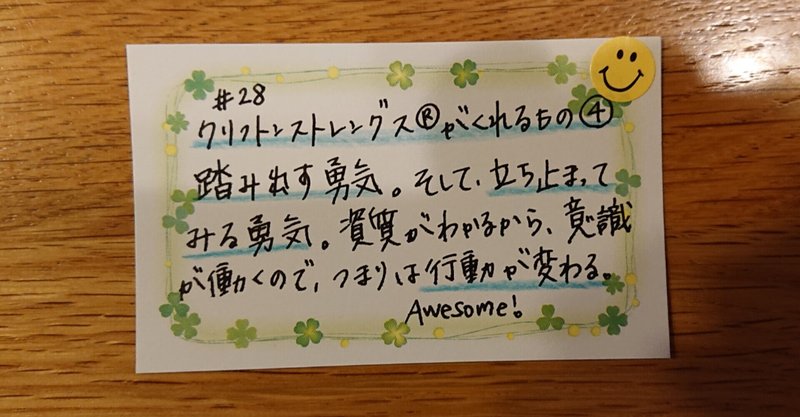 #28
クリフトンストレングス®がくれるもの④
踏み出す勇気。そして、立ち止まって
みる勇気。資質がわかるから、意識
が働くので、つまりは行動が変わる。
Awesome!